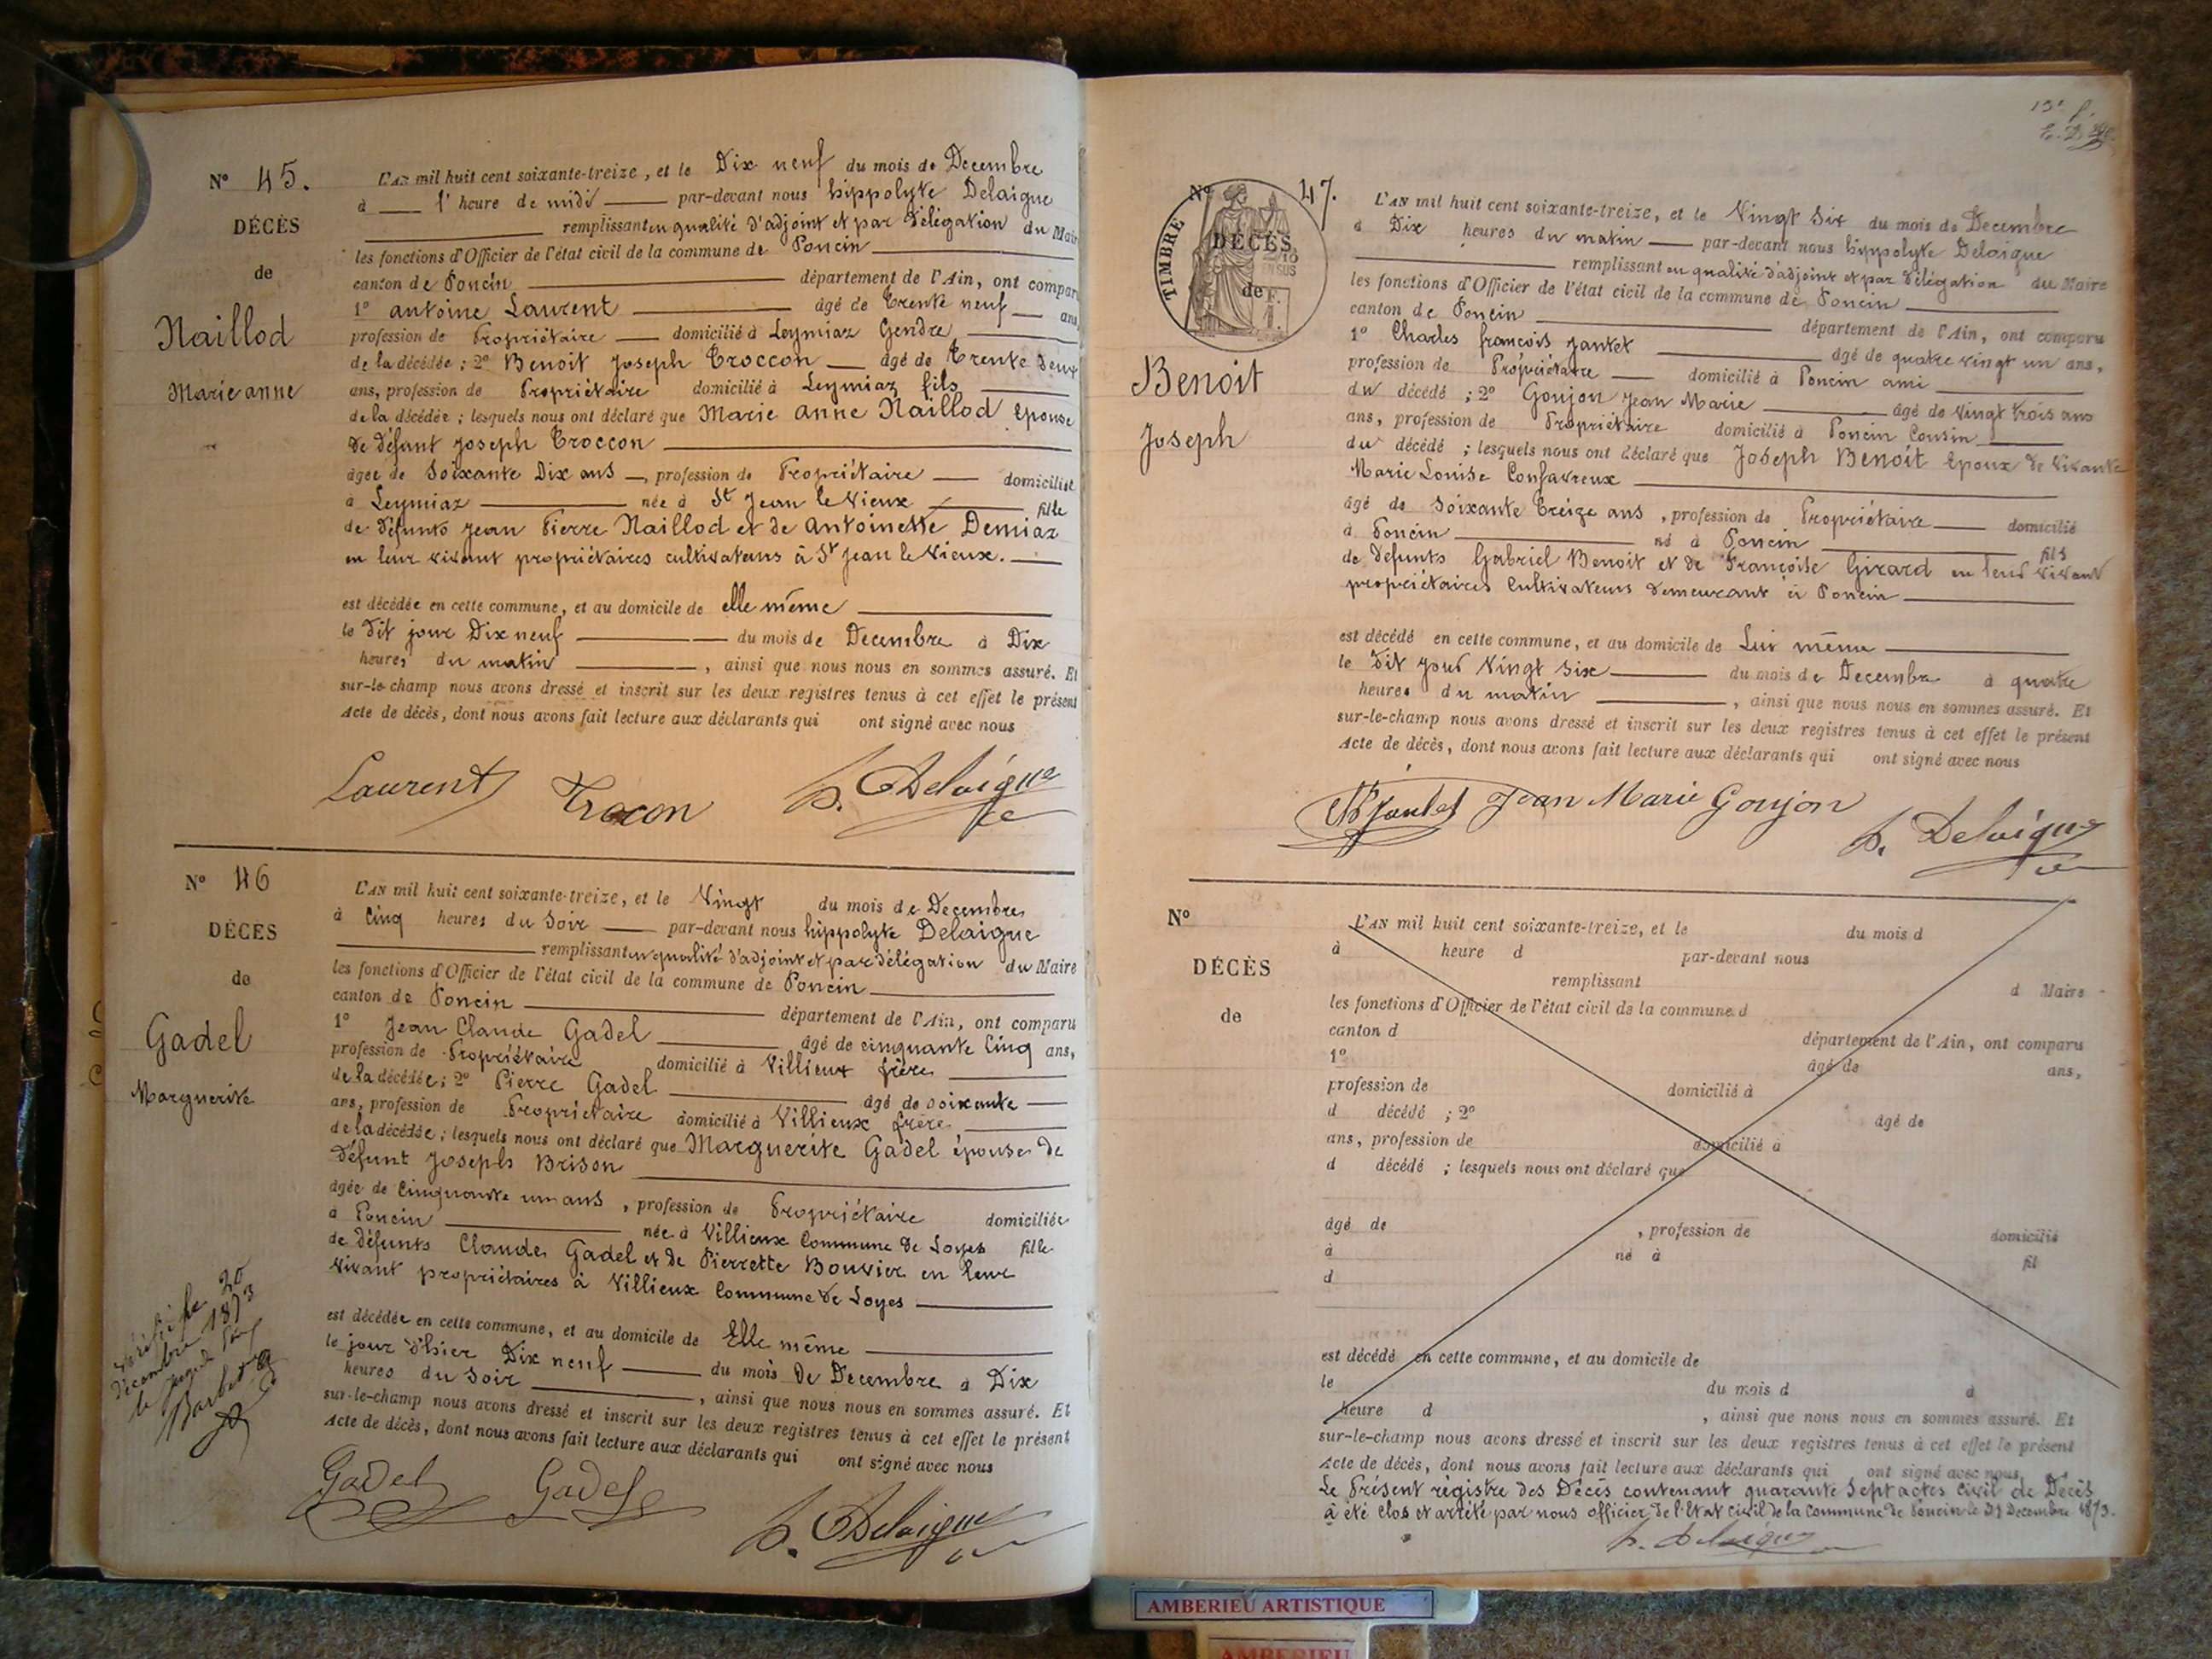 N° 45.
DÉCÈS
de
Naillod
Marie anne
L'AN mil huit cent soixante-treize, et le Dix neuf du mois de Decembre
à l'heure de midi par-devant nous hippolyte Delaigue
remplissant en qualité d'adjoint et par délégation du Maire
les fonctions d'Officier de l'état civil de la commune de Poncin
canton de Poncin département de l'Ain, ont comparu
1° antoine Laurent âgé de Trente neuf ans
profession de Propriétaire domicilié à Leymiaz Gendre
de la décédée ; 2° Benoit Joseph Troccon âgé de Trente Deux
ans, profession de Propriétaire domicilié à Leymiaz fils
de la décédée ; lesquels nous ont déclaré que Marie anne Naillod Epouse
de Défunt Joseph Troccon
âgée de Soixante Dix ans, profession de Propriétaire domiciliée
à Leymiaz née à St Jean le Vieux fille
de défunts Jean Pierre Naillod et de Antoinette Demiaz
en leur vivant propriétaires cultivateurs à St Jean le Vieux.
est décédée en cette commune, et au domicile de elle même
le Dit jour Dix neuf du mois de Decembre à Dix
heures du matin, ainsi que nous nous en sommes assuré. Et
sur-le-champ nous avons dressé et inscrit sur les deux registres tenus à cet effet le présent
Acte de décès, dont nous avons fait lecture aux déclarants qui ont signé avec nous
Laurent Trocon h. Delaigue
N° 46
DÉCÈS
de
Gadel
Marguerite
L'AN mil huit cent soixante-treize, et le Vingt du mois de Decembre
à Cinq heures du Soir par-devant nous hippolyte Delaigue
remplissant en qualité d'adjoint et par délégation du Maire
les fonctions d'Officier de l'état civil de la commune de Poncin
canton de Poncin département de l'Ain, ont comparu
1° Jean Claude Gadel âgé de cinquante Cinq ans,
profession de Propriétaire domicilié à Villieux frère
de la décédée ; 2° Pierre Gadel âgé de soixante
ans, profession de Propriétaire domicilié à Villieux frère
de la décédée ; lesquels nous ont déclaré que Marguerite Gadel épouse de
défunt Joseph Brison
âgée de Cinquante un ans, profession de Propriétaire domiciliée
à Poncin née à Villieux Commune de Loyes fille
de défunts Claude Gadel et de Pierrette Bouvier en leur
vivant propriétaires à Villieux Commune de Loyes
est décédée en cette commune, et au domicile de Elle même
le jour d'hier Dix neuf du mois de Decembre à Dix
heures du Soir, ainsi que nous nous en sommes assuré. Et
sur-le-champ nous avons dressé et inscrit sur les deux registres tenus à cet effet le présent
Acte de décès, dont nous avons fait lecture aux déclarants qui ont signé avec nous
Gadel Gadel h. Delaigue
le 20
décembre 1873
le
N° 47.
TIMBRE
DÉCÈS
de
Benoit
Joseph
L'AN mil huit cent soixante-treize, et le Vingt Six du mois de Decembre
à Dix heures du matin par-devant nous hippolyte Delaigue
remplissant en qualité d'adjoint et par délégation du Maire
les fonctions d'Officier de l'état civil de la commune de Poncin
canton de Poncin département de l'Ain, ont comparu
1° Charles françois Jantet âgé de quatre vingt un ans,
profession de Propriétaire domicilié à Poncin ami
du décédé ; 2° Goujon Jean Marie âgé de Vingt trois ans
ans, profession de Propriétaire domicilié à Poncin Cousin
du décédé ; lesquels nous ont déclaré que Joseph Benoit Epoux de Vivante
Marie Louise Confavreux
âgé de Soixante Treize ans, profession de Propriétaire domicilié
à Poncin né à Poncin fils
de Défunts Gabriel Benoit et de Françoise Girard en leur vivant
propriétaires Cultivateurs demeurant à Poncin
est décédé en cette commune, et au domicile de Lui même
le Dit jour Vingt six du mois de Decembre à quatre
heures du matin, ainsi que nous nous en sommes assuré. Et
sur-le-champ nous avons dressé et inscrit sur les deux registres tenus à cet effet le présent
Acte de décès, dont nous avons fait lecture aux déclarants qui ont signé avec nous
Jantet Jean Marie Goujon h. Delaigue
N°
DÉCÈS
de
L'AN mil huit cent soixante-treize, et le du mois d
à heure d par-devant nous
remplissant d Maire
les fonctions d'Officier de l'état civil de la commune d
canton d département de l'Ain, ont comparu
1° âgé de ans,
profession de domicilié à
d décédé ; 2° âgé de
ans, profession de domicilié à
d décédé ; lesquels nous ont déclaré que
âgé de , profession de domicilié
à né à fil
d
est décédé en cette commune, et au domicile de
le du mois d à
heure d , ainsi que nous nous en sommes assuré. Et
sur-le-champ nous avons dressé et inscrit sur les deux registres tenus à cet effet le présent
Acte de décès, dont nous avons fait lecture aux déclarants qui ont signé avec nous
Le Présent registre des Décès contenant quarante Sept actes Civil de Décès
à été clos et arrêté par nous officier de l'Etat civil de la Commune de Poncin le 31 Decembre 1873.
h. Delaigue
AMBERIEU ARTISTIQUE
AMBERIEU